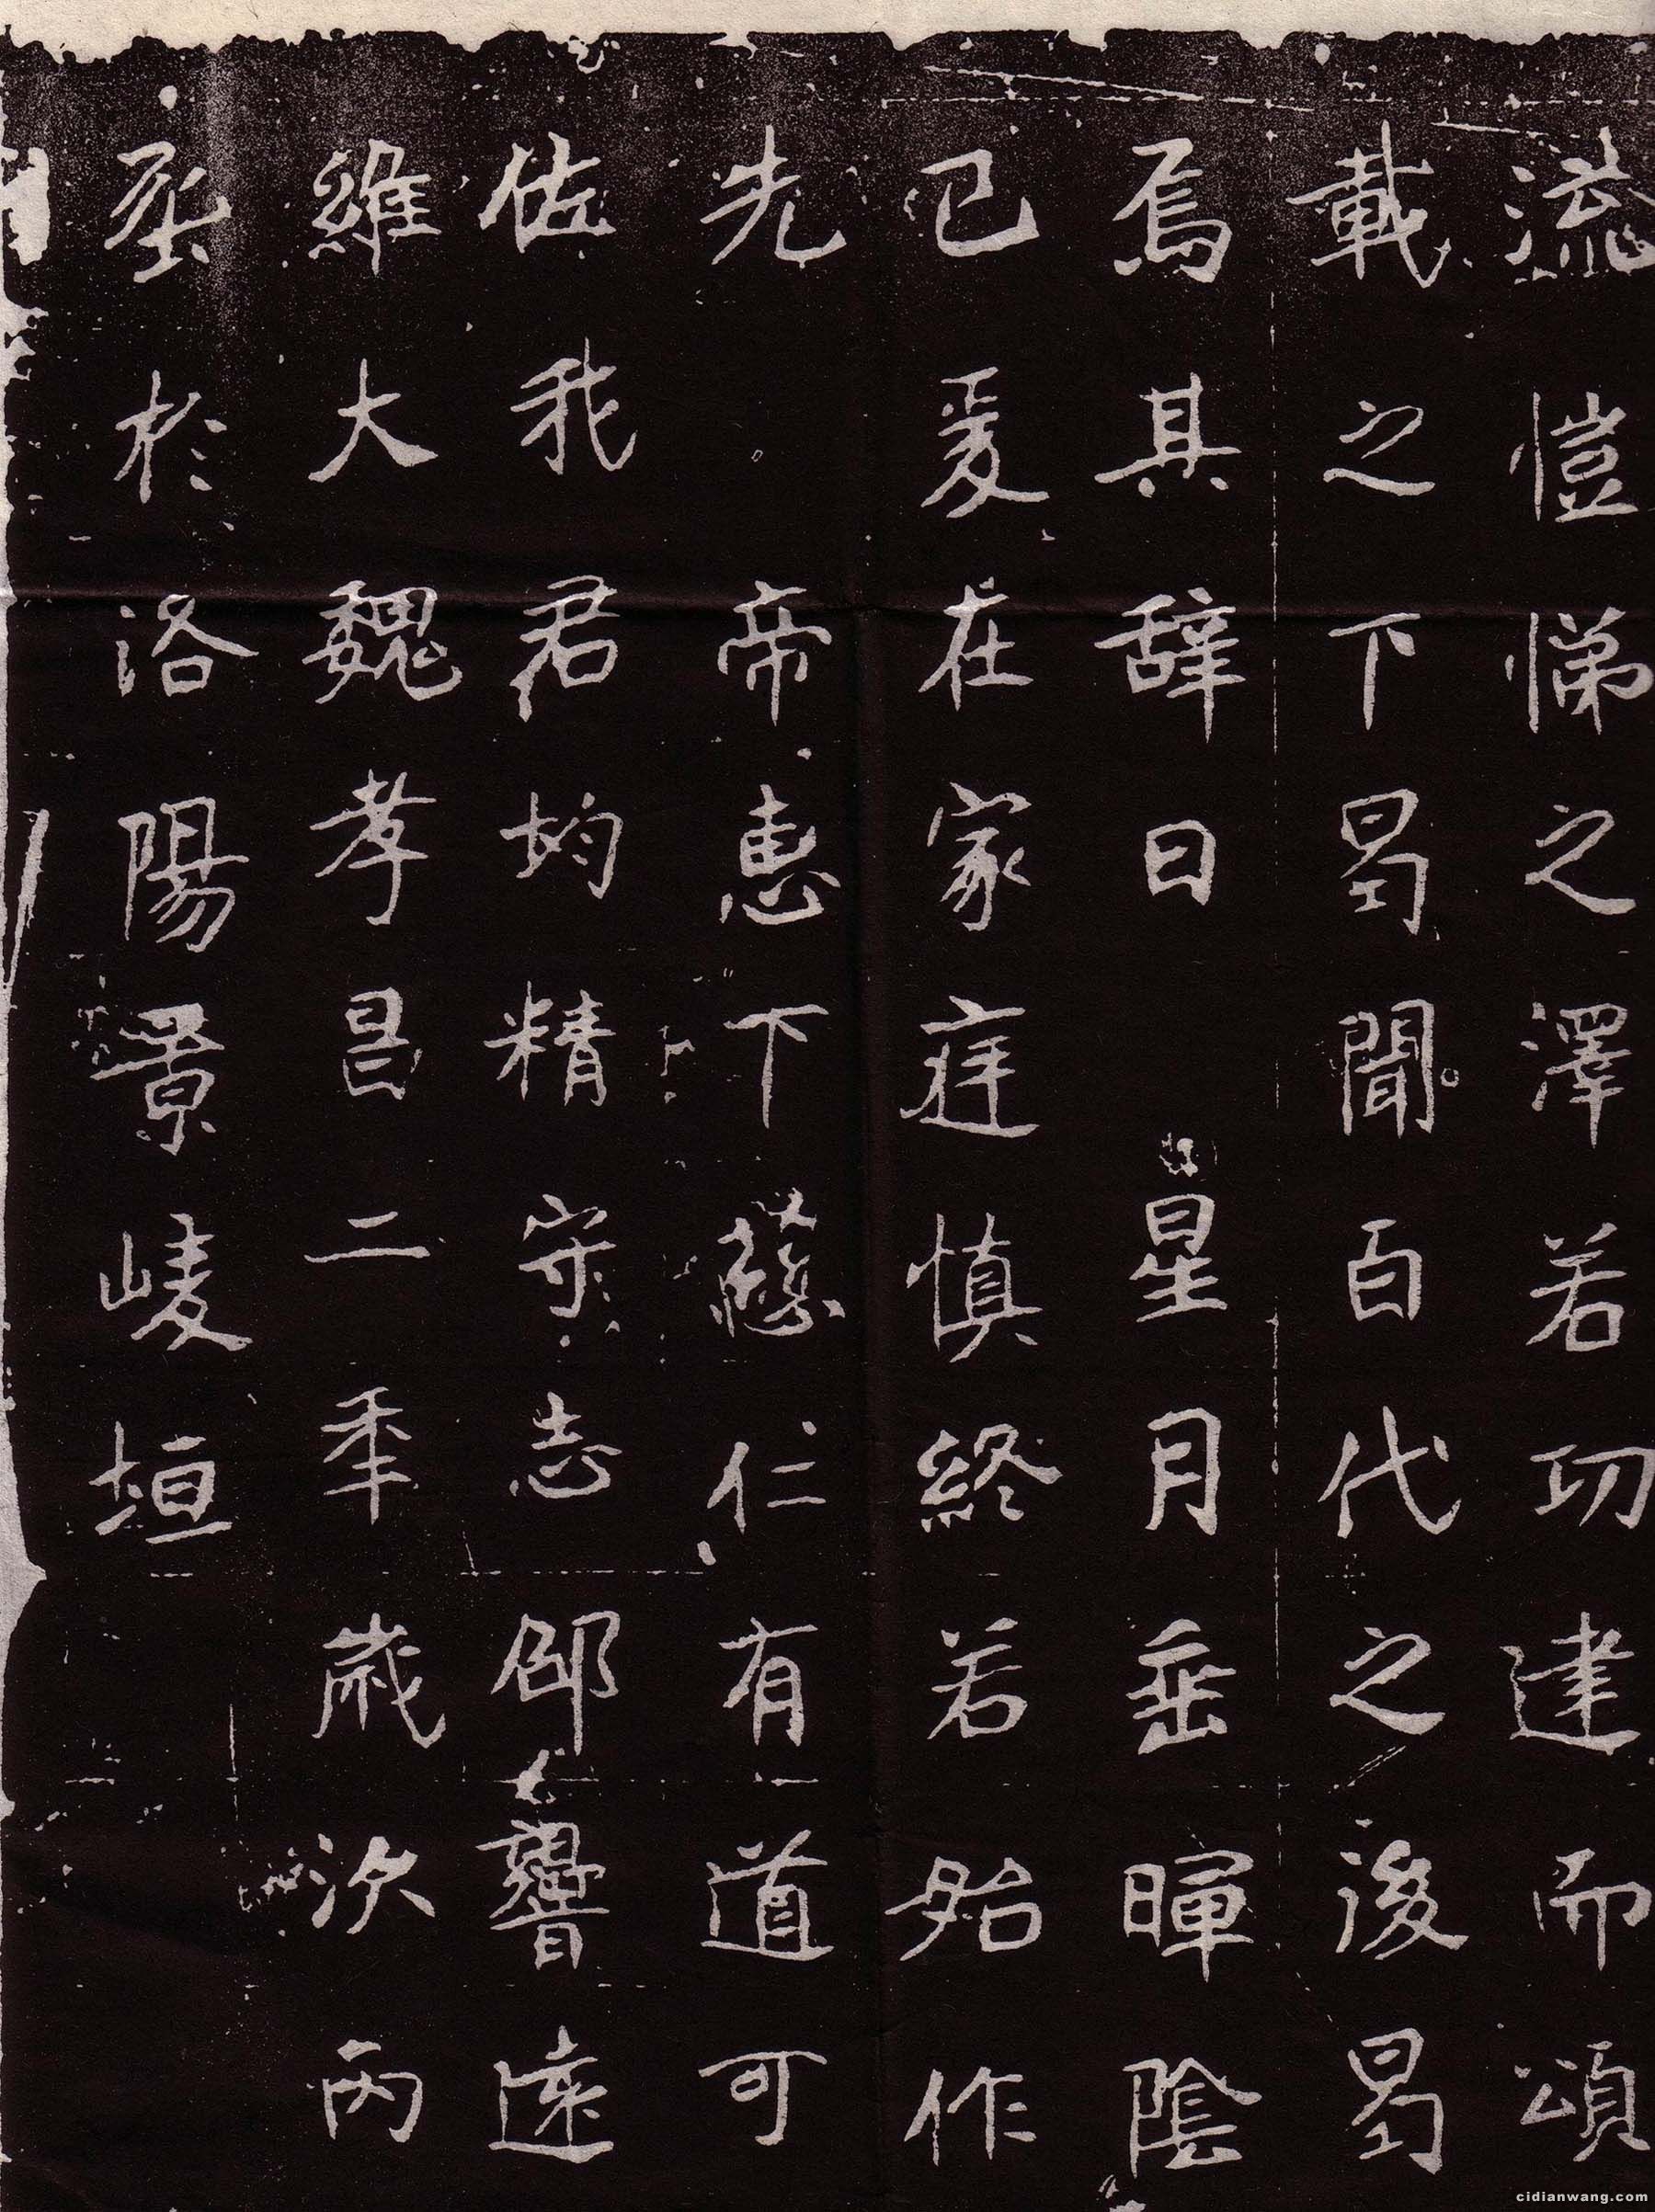 流愷悌之澤若功建而頌
載之下曷聞百代之後曷
焉其辭曰星月垂暉陰
已爰在家庭慎終若始作
先帝惠下慈仁有道可
佐我君均精守志邵響遠
維大魏孝昌二年歲次丙
於洛陽景崚垣
cidianwang.com